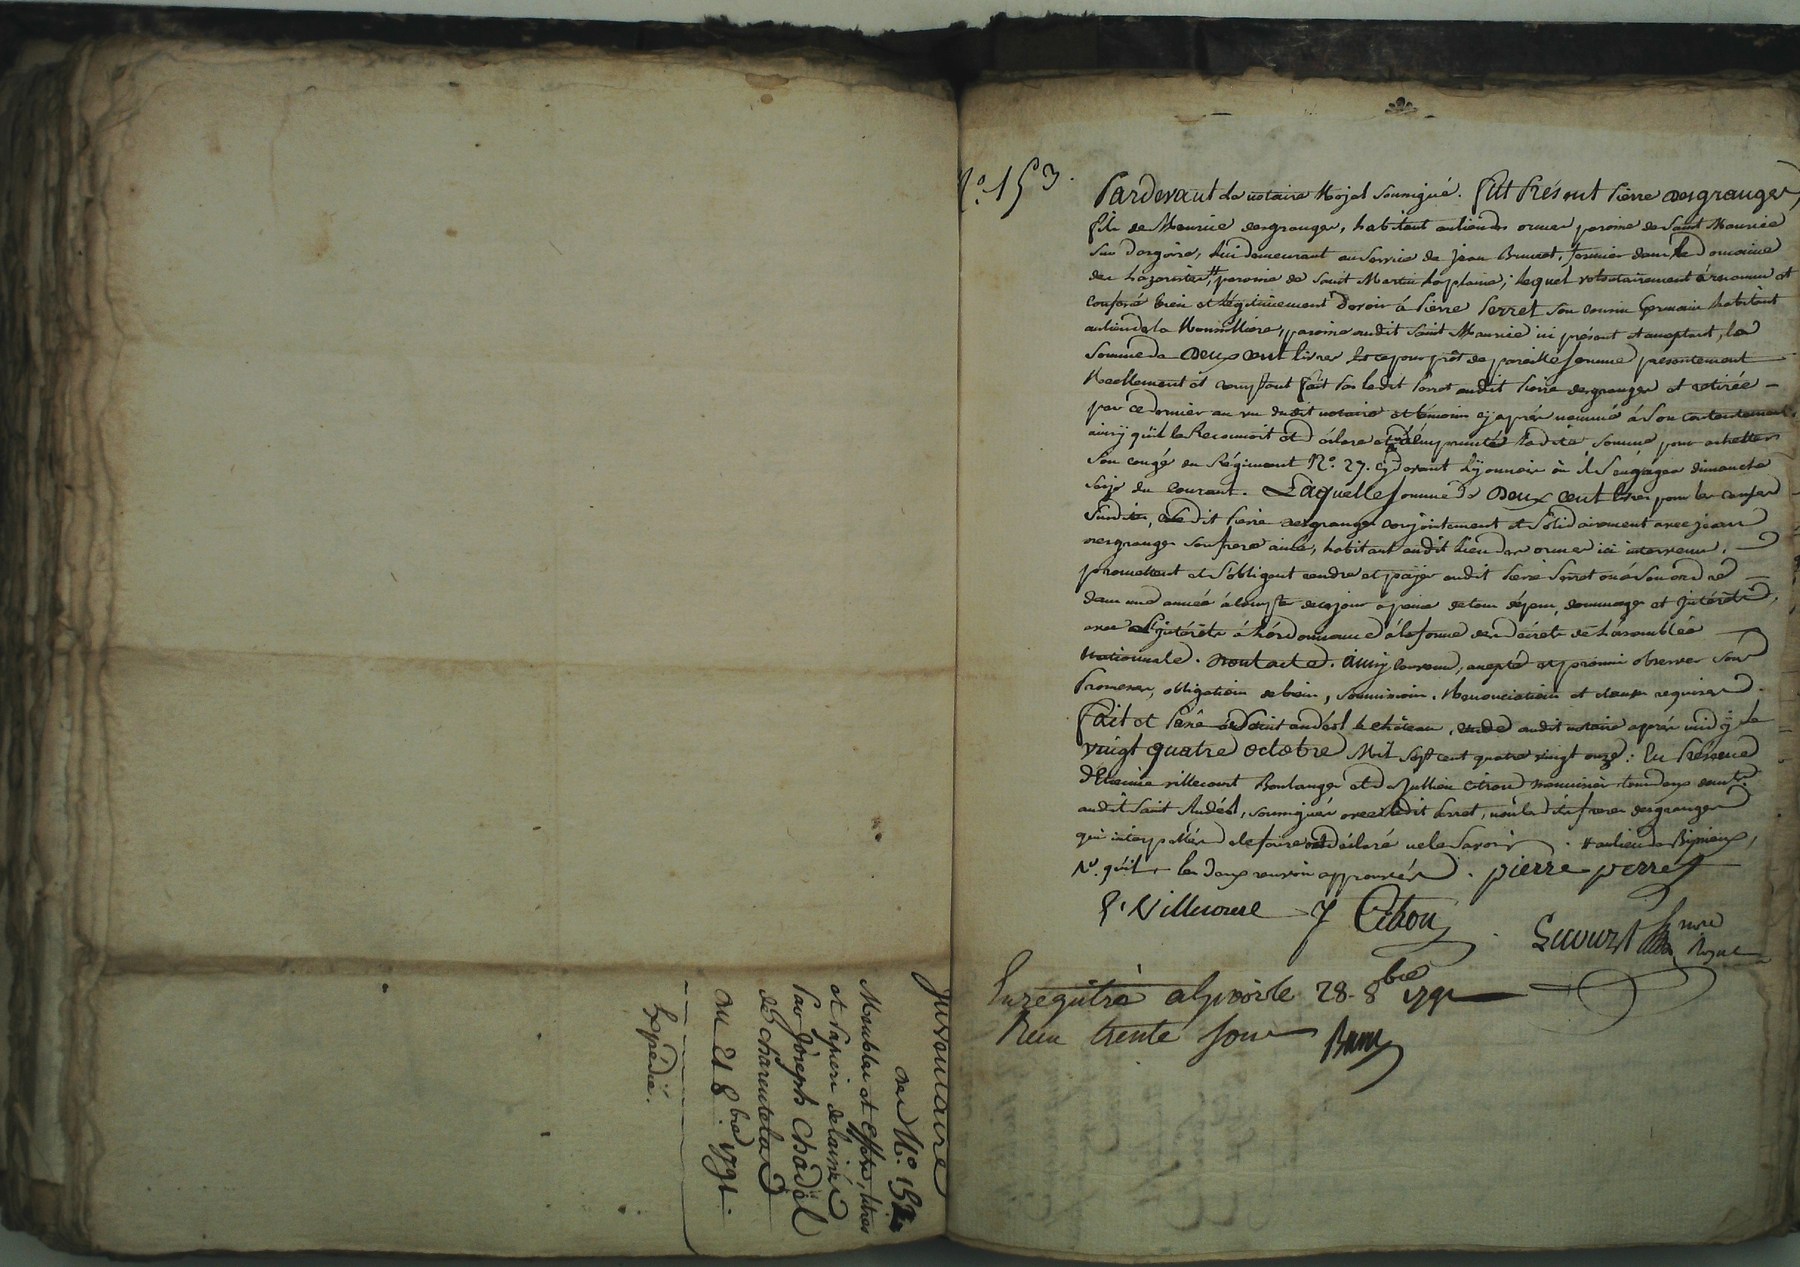 Inventaire
du N.o 152
Meubles et effets, titres
et papiers delaissés
par Joseph Chådel
de charentela
du 21 8.bre 1791.
Expédié.
N.o 153.
Pardevant le notaire Royal soussigné. fut Présent Pierre desgranges,
fils de Maurice desgranges, habitant au lieu des ormes paroisse de saint Maurice
sur dargoire, lui demeurant au service de jean Brunet, fermier dans le domaine
des Lazaristes # paroisse de Saint Martin laplaine; lequel volontairement à reconnu et
confessé bien et légitimement devoir à Pierre Perret son cousin Germain habitant
au lieu de la paroisse audit Saint Maurice ici présent et acceptant, la
somme de deux cent livres et ce pour prêt de pareille somme présentement
Réellement et comptant fait par ledit Perret audit Pierre desgranges et retirée
par ce dernier au vu dudit notaire et témoins cy après nommés à son contentement,
ainsy qu'il le Reconnoit et déclare emprunté ladite somme pour achetter
son congé du Régiment N.o 27. cy devant Lyonnois où il s'engagea dimanche
seize du courant. Laquelle somme de Deux cent livres pour les causes
susdites, ledit Pierre desgranges conjointement et solidairement avec jean
desgranges son frere ainé, habitant audit lieu des ormes ici intervenu,
promettent et s'obligent rendre et payer audit Pierre Perret ou à son ordre
dans une année à compter de ce jour a peine de tous dépens, dommages et intérêts,
avec intérêts à l'ordonnance à la forme des décrets de l'assemblée
Nationnale. Dont acte. Ainsy convenu, accepté et promis observer sous
Promesses, obligations de biens, soumissions, Renonciations et clauses requises.
Fait et Passé à Saint andéol le château, étude audit notaire après midy le
vingt quatre octobre Mil sept cent quatre vingt onze: En Présence
d'Etienne villecourt Boulanger et de Jullien Citron menuisier tous deux demeurts.
audit Saint Andéol, soussignés avec ledit Perret, non lesdits freres desgranges
qui interpellés de faire ont déclaré ne le savoir. # au lieu de
qu'il les deux renvois approuvés. pierre perret
E. Villecourt J Citron
nore Royal
Enregistré a givorsle 28. 8bre 1791
Reçu trente sous